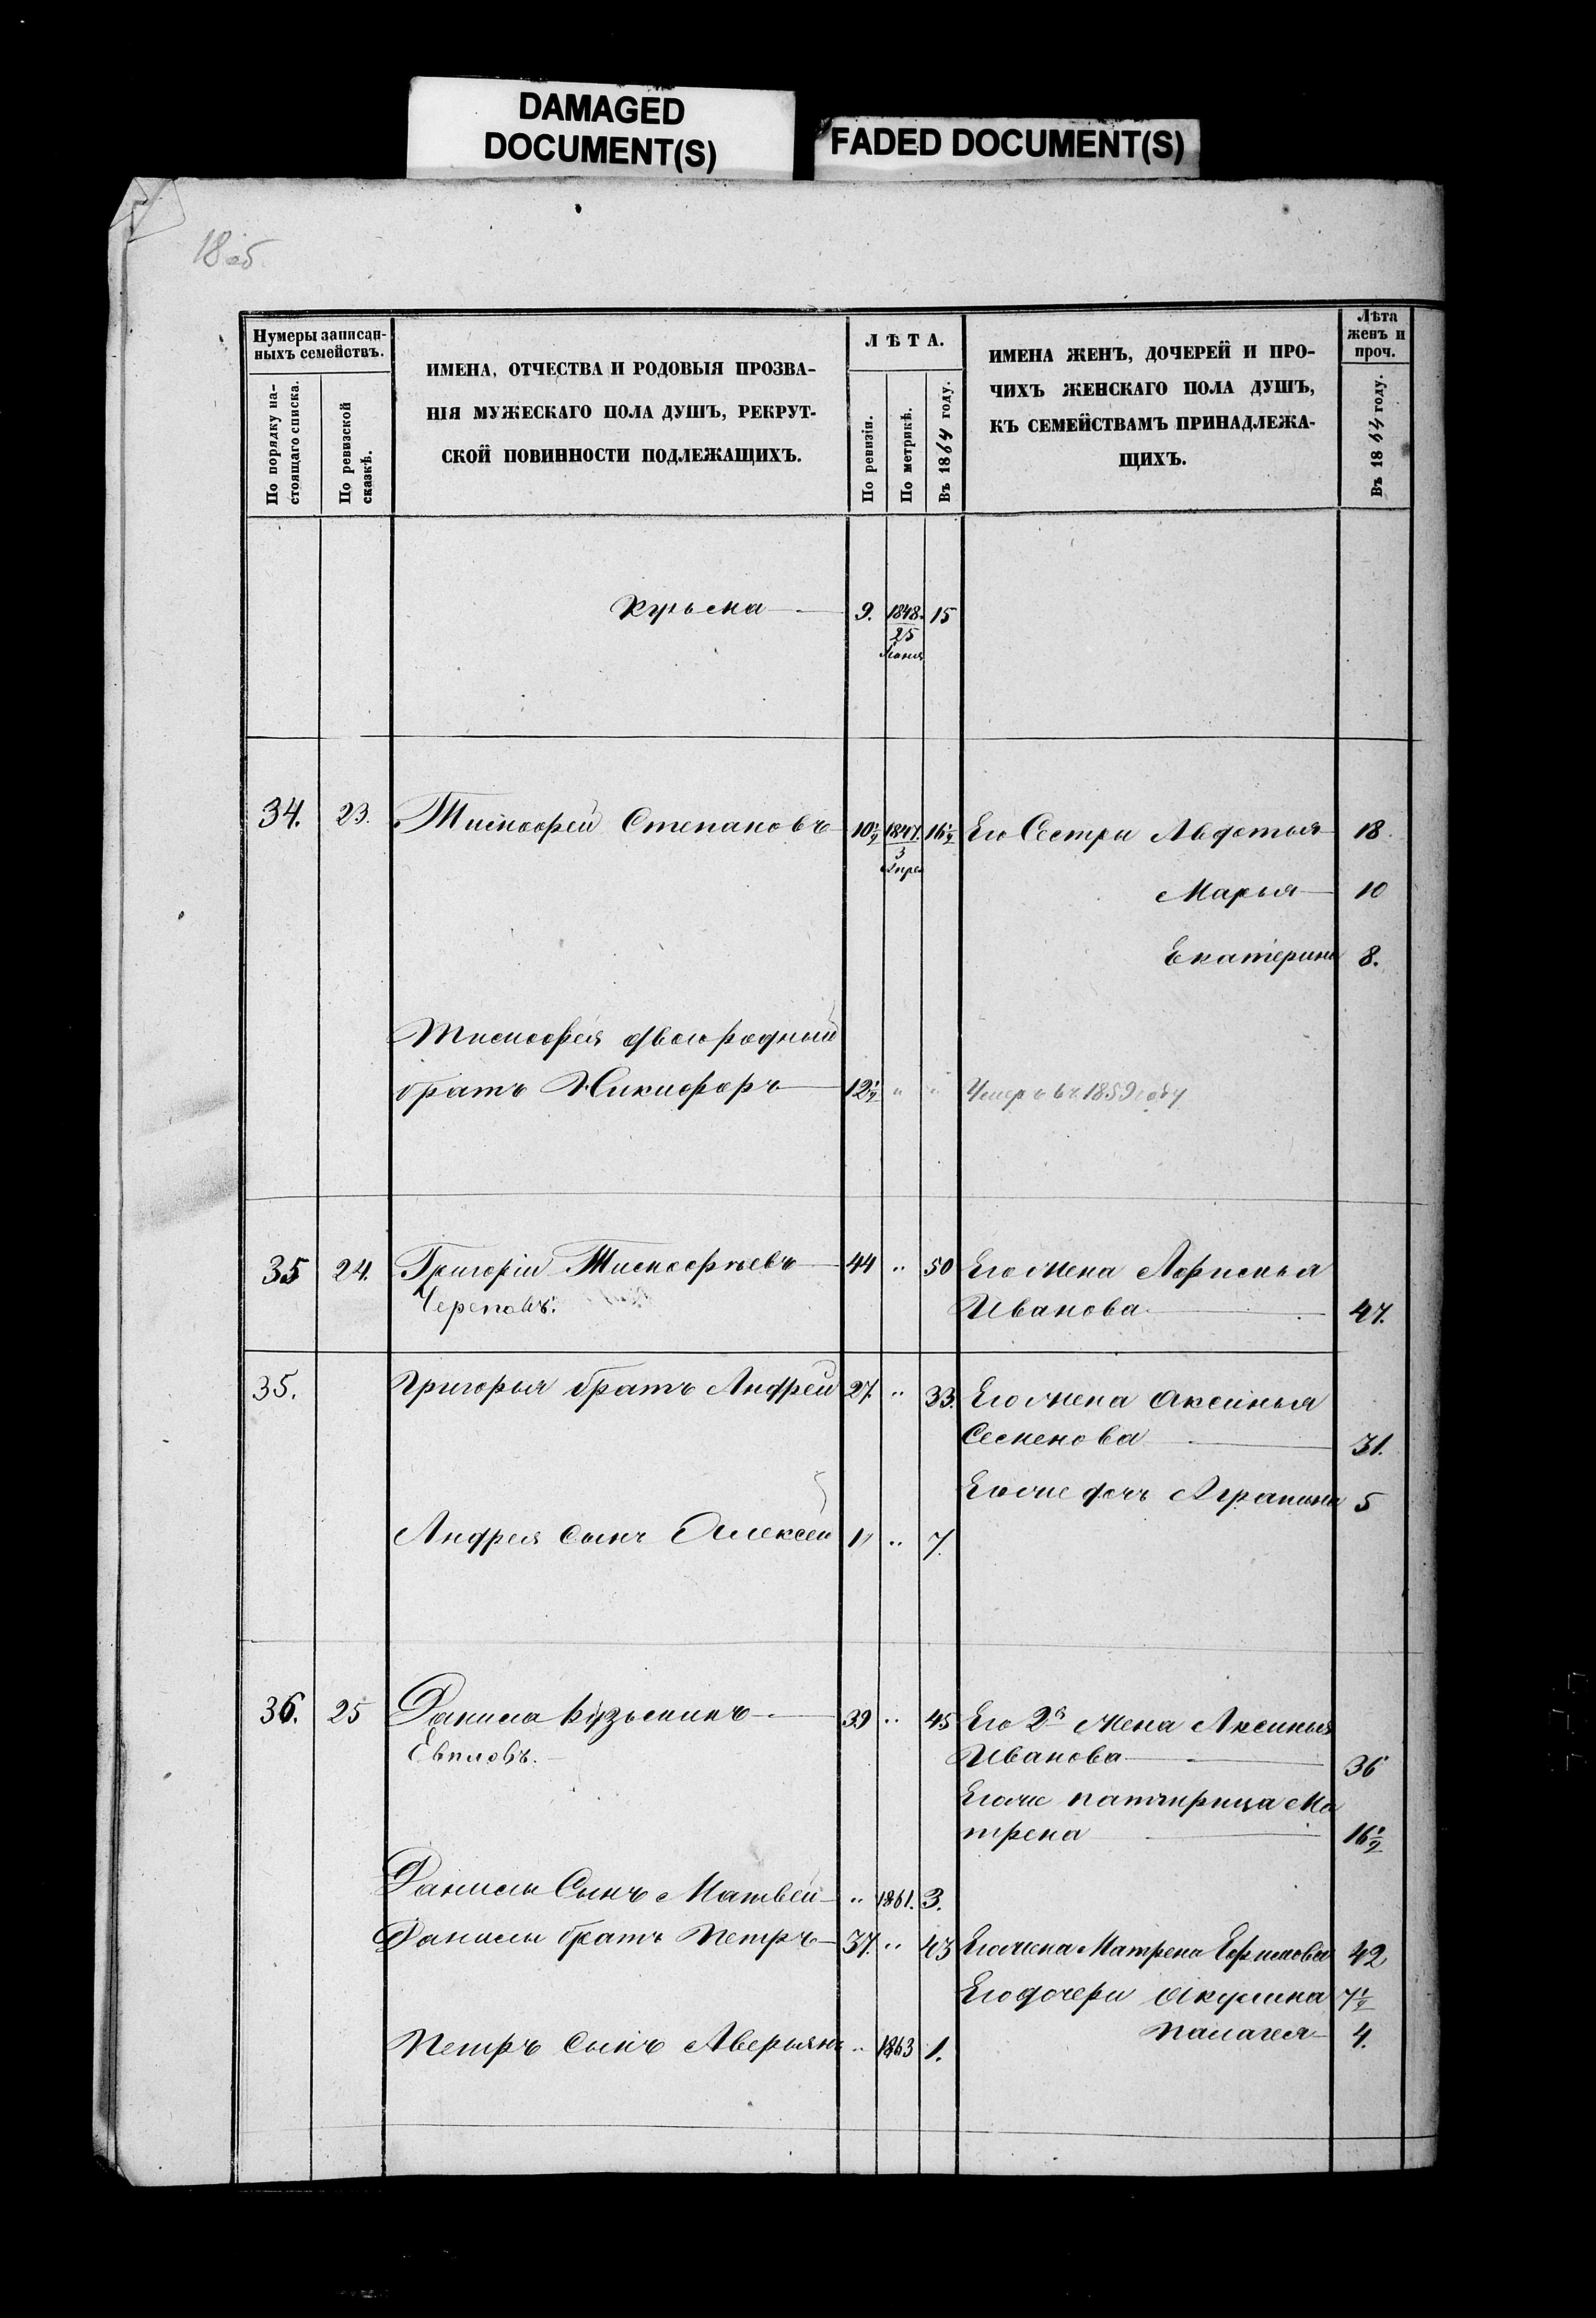 DAMAGED
DOCUMENT(S)
FADED DOCUMENT(S)
18 об.
Нумеры записан-
ныхъ семействъ.
По порядку на-
стоящаго списка.
По ревизской
сказкѣ.
ИМЕНА, ОТЧЕСТВА И РОДОВЫЯ ПРОЗВА-
НІЯ МУЖЕСКАГО ПОЛА ДУШЪ, РЕКРУТ-
СКОЙ ПОВИННОСТИ ПОДЛЕЖАЩИХЪ.
ЛѢТА.
По ревизіи.
По метрикѣ.
Въ 1864 году.
ИМЕНА ЖЕНЪ, ДОЧЕРЕЙ И ПРО-
ЧИХЪ ЖЕНСКАГО ПОЛА ДУШЪ,
КЪ СЕМЕЙСТВАМЪ ПРИНАДЛЕЖА-
ЩИХЪ.
Лѣта
женъ и
проч.
Въ 1864 году.
Кузьма 9. 1848. 15
25
34. 23. Тимофей Степановъ 10½ 1847. 16½ Его Сестры Авдотья 18.
3
Апре
Марья 10
Екатерина 8.
Тимофея двоюродный
братъ Никифоръ 12½ " " Умеръ въ 1859 году
35 24. Григорій Тимофѣевъ 44 " 50 Его жена Афимья
Череповъ. Иванова 47.
35. Григорья братъ Андрей 27. " 33. Его жена Аксинья
Семенова 31.
Его же дочь Аграпина 5
Андрея Сынъ Алексей 1 " 7.
36. 25 Данила Кузьминъ 39 " 45 Его 2я жена Аксинья
Евпловъ. Иванова 36
Его же патчирица Ма
трена 16½
Данилы Сынъ Матвей " 1861. 3.
Данилы братъ Петръ 37. " 43 Его жена Матрена Ефимова 42
Его дочери Акулина 7½
Палагея 4.
Петръ Сынъ Аверьянъ " 1863 1.